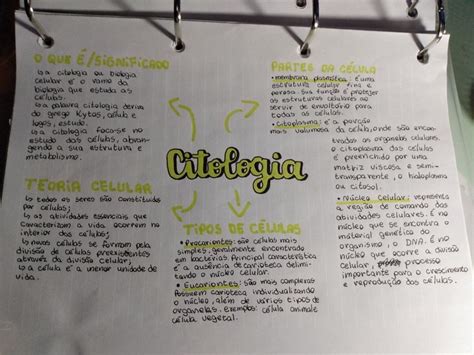 O QUE É/SIGNIFICADO
↳ a citologia ou biologia
celular é o ramo da
biologia que estuda as
células;
↳ a palavra citologia deriva
do grego kytos, célula e
logos, estudo.
↳ a citologia foca-se no
estudo das células, abran-
gendo a sua estrutura e
metabolismo.
TEORIA CELULAR
↳ todos os seres são constituídos
por células;
↳ as atividades essenciais que
caracterizam a vida ocorrem no
interior das células;
↳ novas células se formam pela
divisão de células preexistentes
através da divisão celular;
↳ a célula é a menor unidade de
vida.
Citologia
TIPOS DE CÉLULAS
• Procariontes: são células mais
simples, geralmente encontrada
em bactérias. Principal característica
é a ausência de carioteca delimitan-
do o núcleo celular.
• Eucariontes: são mais complexas
Possuem carioteca individualizando
o núcleo, além de vários tipos de
organelas, exemplos célula animal e
célula vegetal.
PARTES DA CÉLULA
• membrana plasmática: é uma
estrutura celular fina e
porosa. Sua função é proteger
as estruturas celulares ao
servir de envoltório para
todas as células.
• Citoplasma: é a porção
mais volumosa da célula, onde são encon-
tradas as organelas celulares.
O citoplasma das células
é preenchido por uma
matriz viscosa e semi-
transparente, o hialoplasma
ou citosol.
• Núcleo celular: representa
a região de comando das
atividades celulares. É no
núcleo que se encontra o
material genético do
organismo, o DNA. É no
núcleo que ocorre a divisão
celular, processo
importante para o crescimento
e reprodução das células.